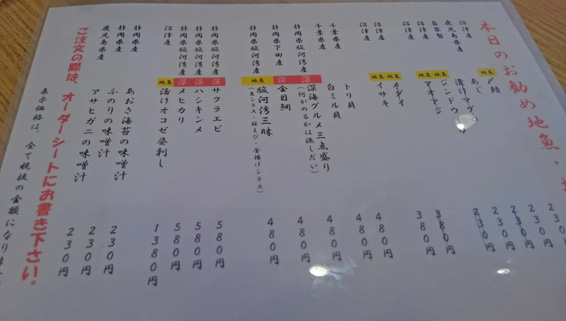 本日のお勧め地魚・
地魚 鯵 230円
沼津産 地魚 あじ 230円
鹿児島県産 漬けマグロ 230円
自家製
沼津産 地魚 380円
沼津産 地魚 380円
沼津産 地魚 480円
沼津産 地魚 イサキ 480円
トリ貝
千葉県産 白ミル貝 480円
千葉県産 深 深海グルメ三点盛り 480円
静岡県駿河湾産 深 (何がのるかは流しだい)
静岡県下田産 深 金目鯛 480円
静岡県駿河湾産 地魚 駿河湾三昧 480円
(生シラス・桜えび・釜揚げシラス)
静岡県駿河湾産 深 サクラエビ 580円
静岡県駿河湾産 深 ハシキンメ 580円
静岡県駿河湾産 深 メヒカリ 580円
沼津産 地魚 活けオコゼ姿刺し 1380円
静岡県産 あおさ海苔の味噌汁 230円
鹿児島県産 ふのりの味噌汁 230円
静岡県産 アサヒガニの味噌汁 230円
ご注文の際は、オーダーシートにお書き下さい。
表示価格は、全て税抜の金額になります